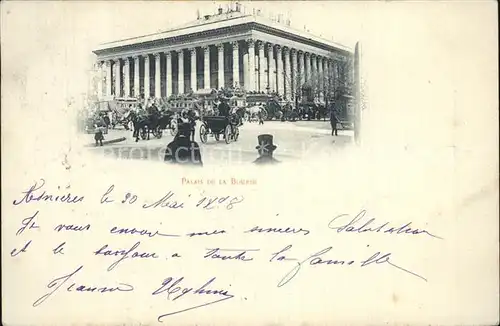 PALAIS DE LA BOURSE
Asnières le 30 Mai 1898
Je vous envoie mes sincères Salutation
et le bonjour a toute la famille
Jeanne